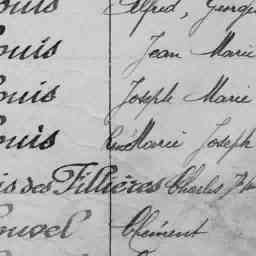 ouis Alfred, George
ouis Jean Marie
ouis Joseph Marie
ouis René Marie Joseph
is des Fillières Charles
ouvel Clément